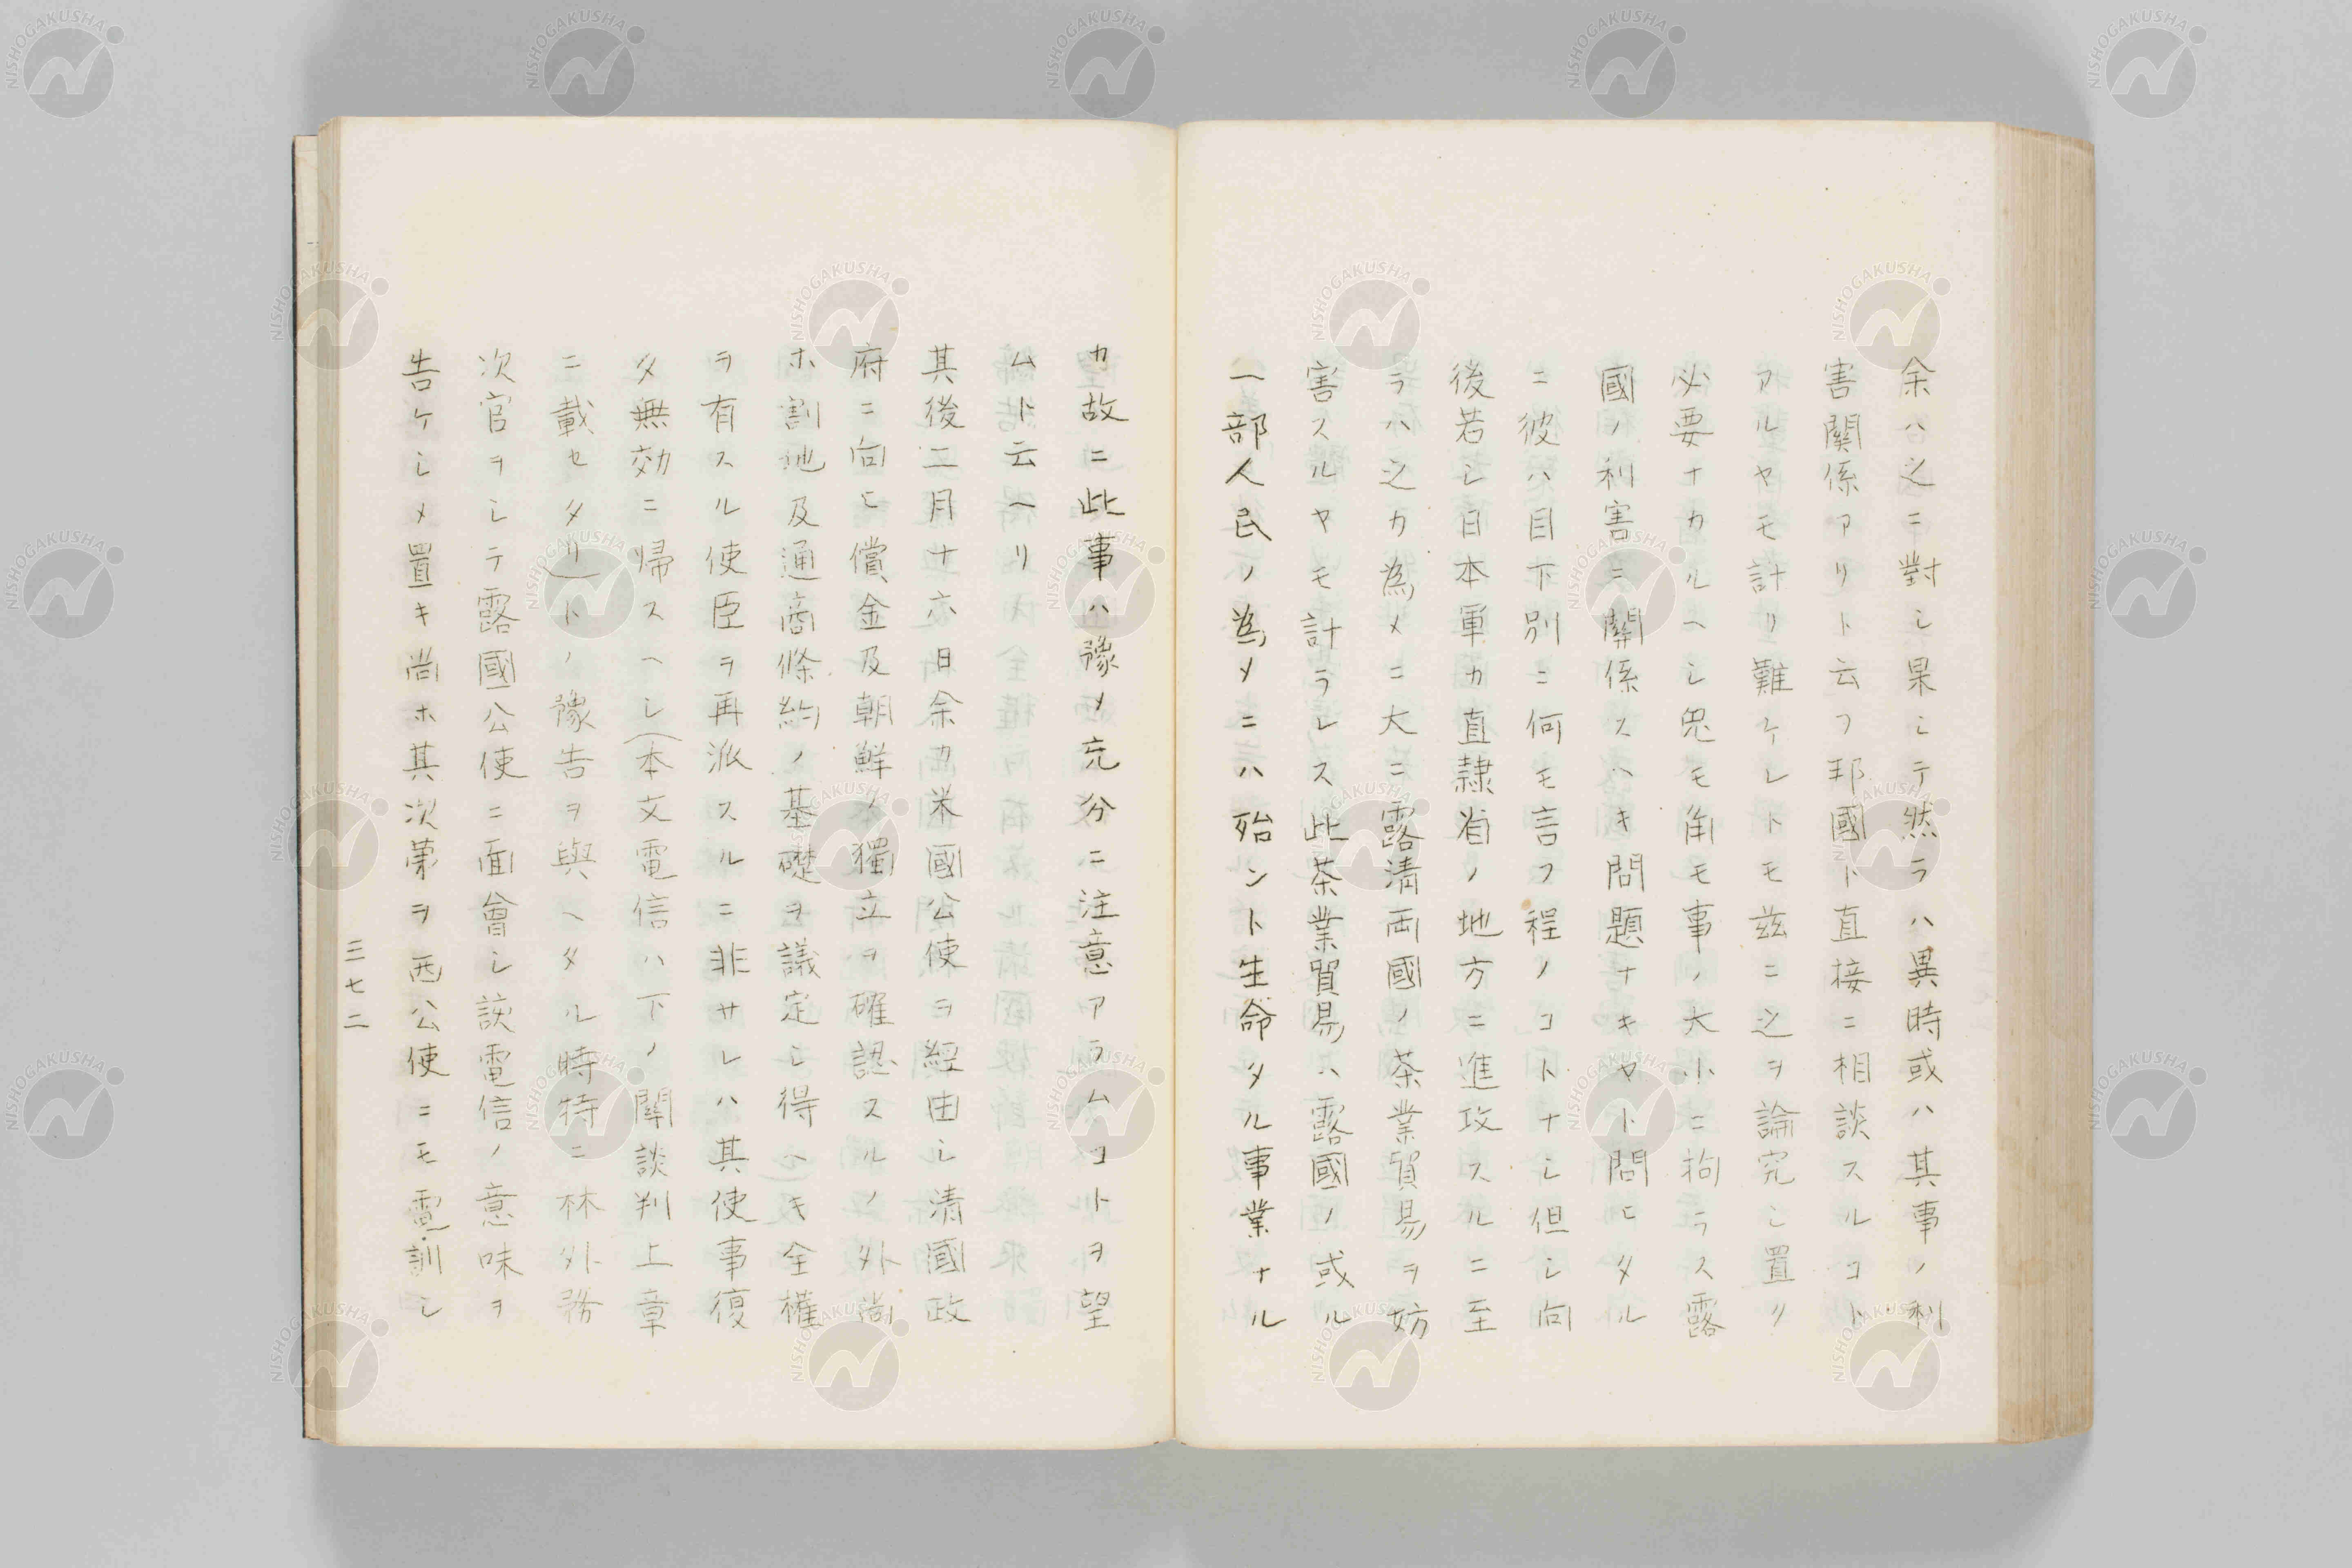 余ハ之ニ對シ果シテ然ラハ異時或ハ其事ノ利
害關係アリト云フ邦國ト直接ニ相談スルコト
アルヤモ計リ難ケレトモ茲ニ之ヲ論究シ置ク
必要ナカルヘシ兎モ角モ事ノ大小ニ拘ラス露
國ノ利害ニ關係スヘキ問題ナキヤト問ヒタル
ニ彼ハ目下別ニ何モ言フ程ノコトナシ但シ向
後若シ日本軍カ直隷省ノ地方ニ進攻スルニ至
ラハ之カ為メニ大ニ露清両國ノ茶業貿易ヲ妨
害スルヤモ計ラレス此茶業貿易ハ露國ノ或ル
一部人民ノ為メニハ殆ント生命タル事業ナル
カ故ニ此事ハ豫メ充分ニ注意アラムコトヲ望
ムト云ヘリ
其後二月十六日余カ米國公使ヲ經由シ清國政
府ニ向ヒ償金及朝鮮ノ獨立ヲ確認スルノ外尚
ホ割地及通商條約ノ基礎ヲ議定シ得ヘキ全權
ヲ有スル使臣ヲ再派スルニ非サレハ其使事復
タ無効ニ帰スヘシ(本文電信ハ下ノ關談判上章
ニ載セタリ)トノ豫告ヲ與ヘタル時特ニ林外務
次官ヲシテ露國公使ニ面會シ該電信ノ意味ヲ
告ケシメ置キ尚ホ其次第ヲ西公使ニモ電訓シ
三七二
NISHOGAKUSHA